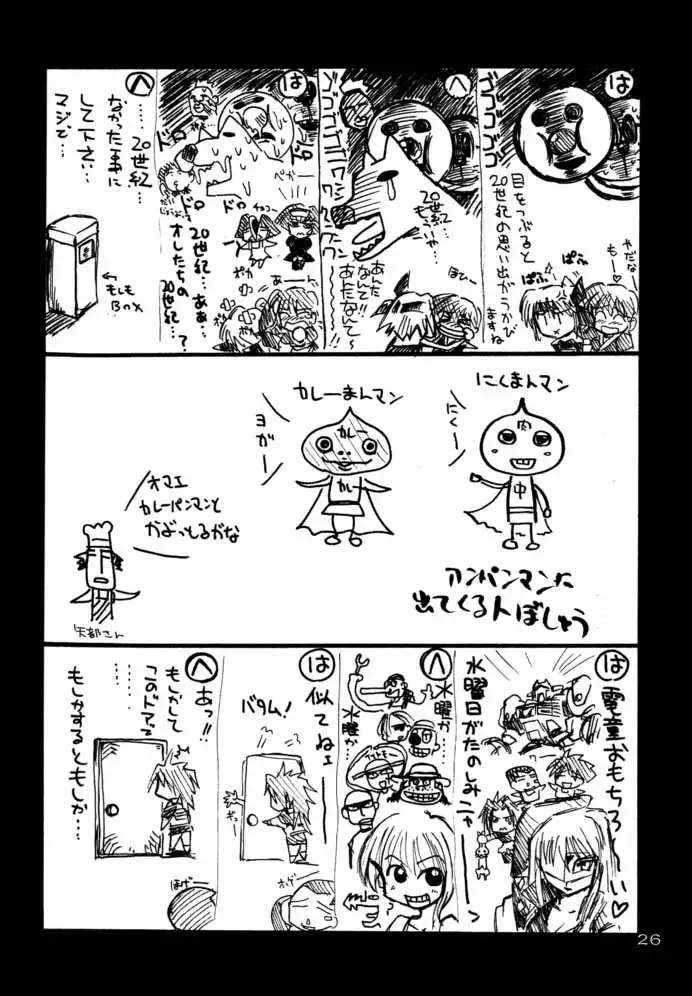 は
ゴゴゴゴ
目をつぶると
20世紀の思い出がうかび
ますね
やだな
もー♡
ぱふ
ぱふ
へ
ゴゴゴゴ
ワンワンワン
20世紀
もういや…
あんた
なんて!!
あんたなんて~
は
ドロ
ドロ
ドロ
ドロ
20世紀…ああ…
オレたちの
20世紀…?
ポカ
ポカ
あーー
へ
……20世紀…
なかった事に
して下さい…
マジで…
←
もしも
Box
にくまんマン
にくー
肉
中
カレーまんマン
ヨガー
カレー
カレー
オマエ
カレーパンマンと
かぶっとるがな
矢部さん
アンパンマンに
出てくる人ぼしゅう
は
電童おもちろーい♡
水曜日がたのしみニャー
へ
水曜か
水曜か
は
似てねェ
バタム!
へ
あっ!!
もしかして
このドアって
……
もしかするともしか…
はげー
ホゲー
26